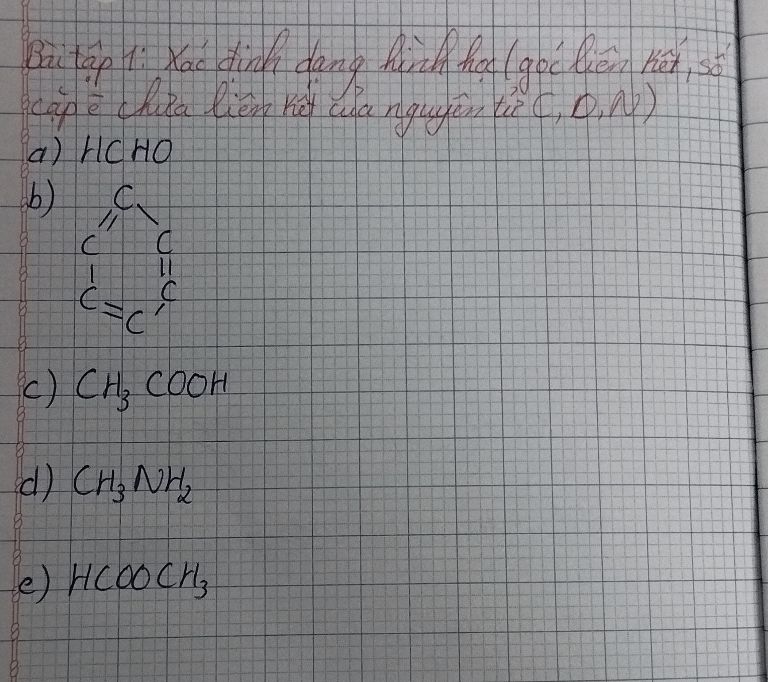 Bài tập 1: Xác định dạng hình học (góc liên kết, số
cặp e chưa liên kết của nguyên tử C, O, N)
a) HCHO
b)
C
C C
C C
C
c) CH₃COOH
d) CH₃NH₂
e) HCOOCH₃